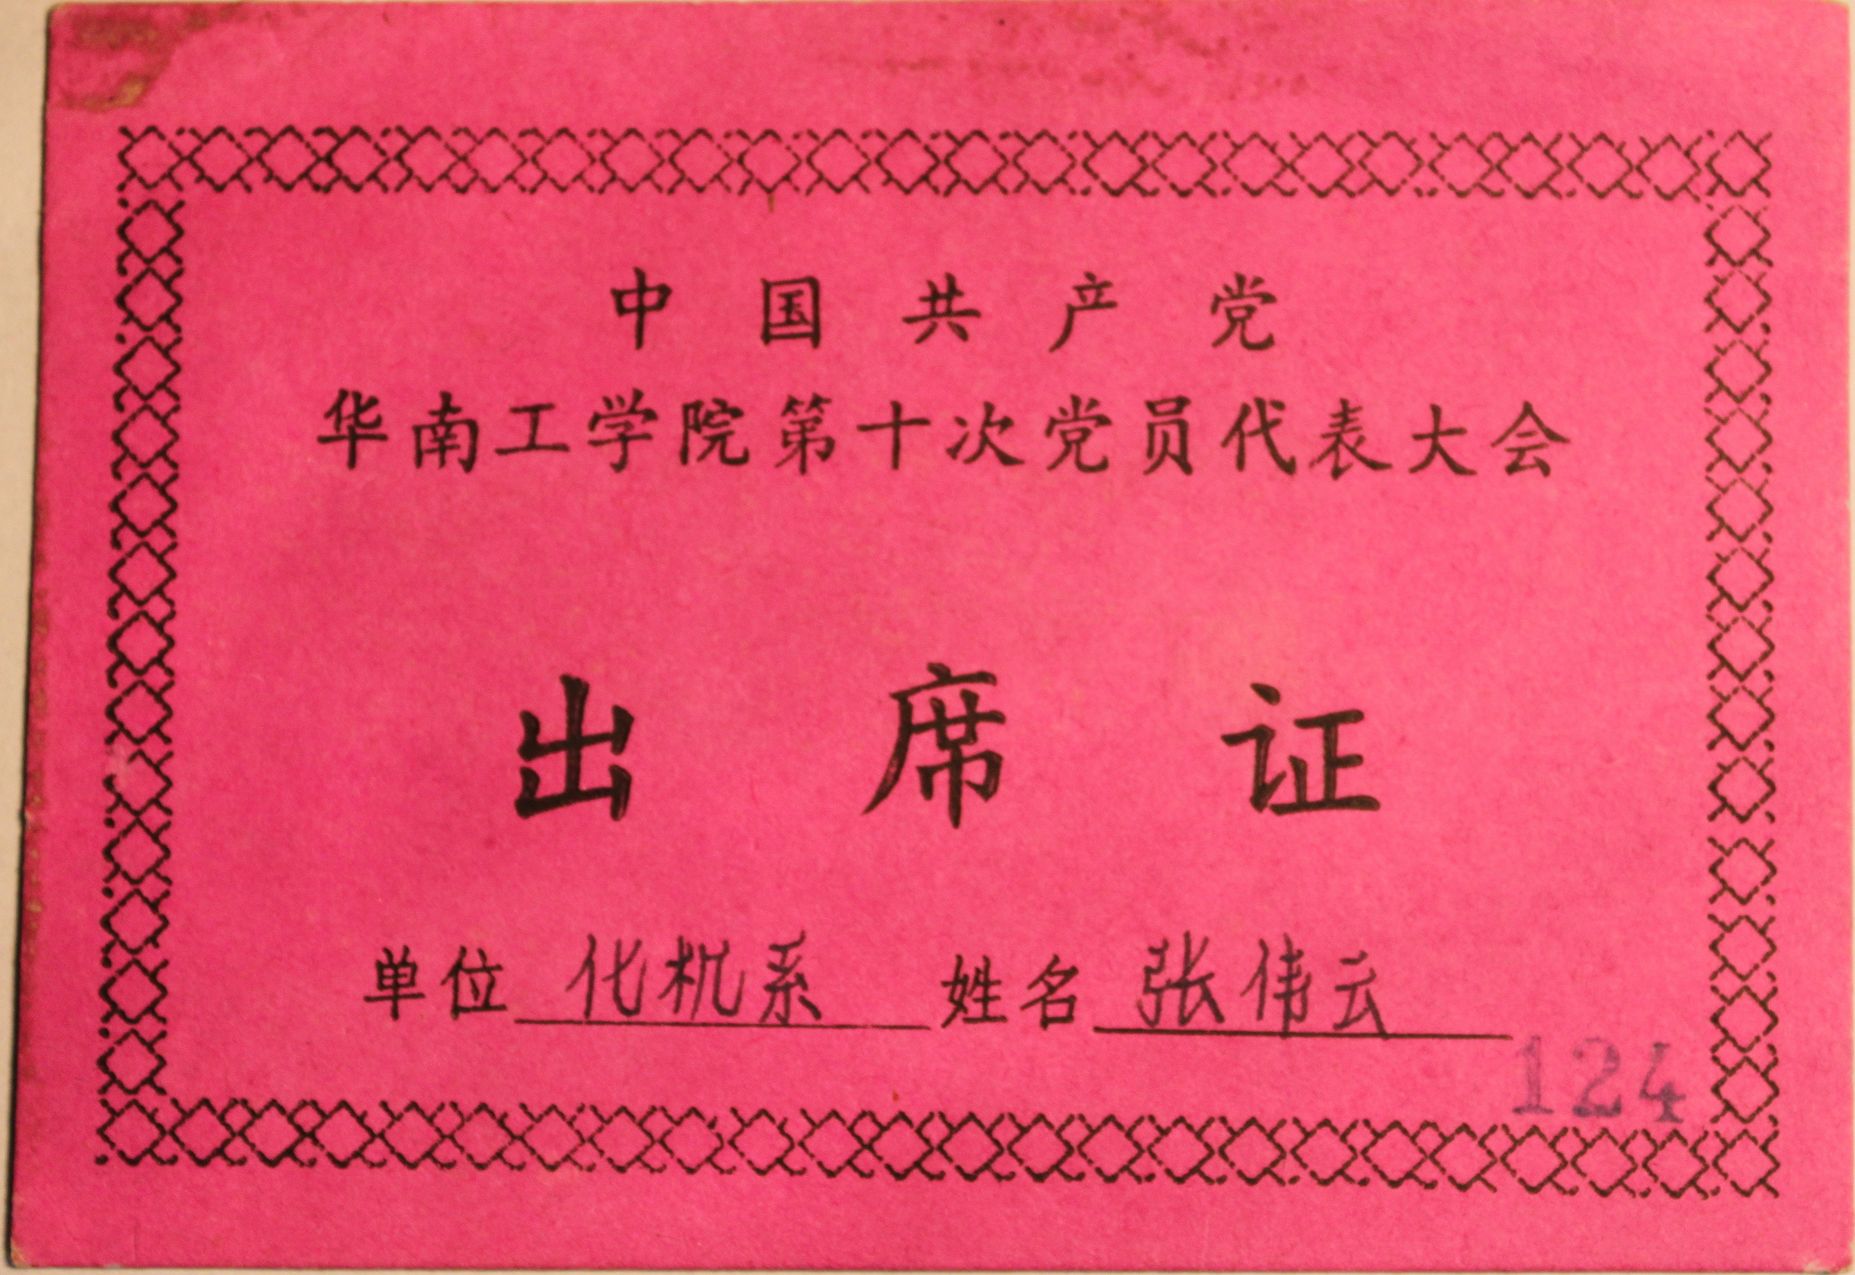 中国共产党
华南工学院第十次党员代表大会
出席证
单位 化机系 姓名 张伟云
124